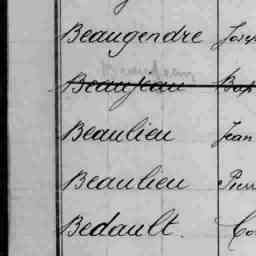 Beaugendre Josep
Beaujeau Bap
Beaulieu Jean
Beaulieu Pierr
Bedault. Co